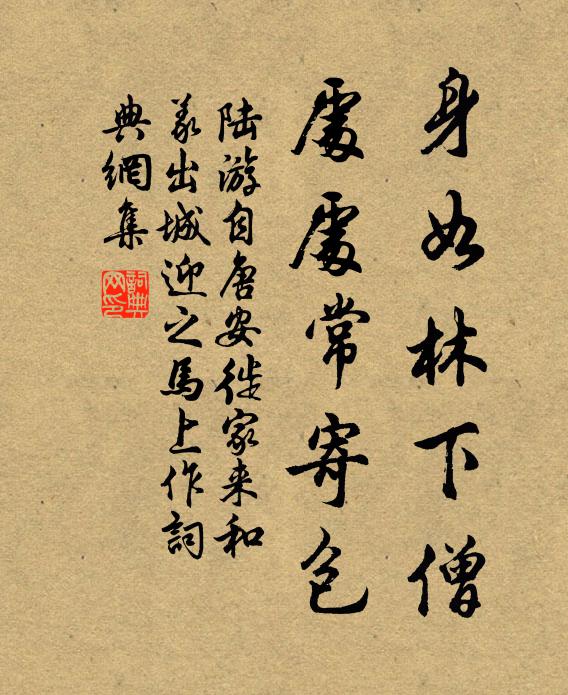 身如林下僧
處處常寄包
陆游自唐安徙家来和
義出城迎之馬上作詞
典網集
詞典
网印